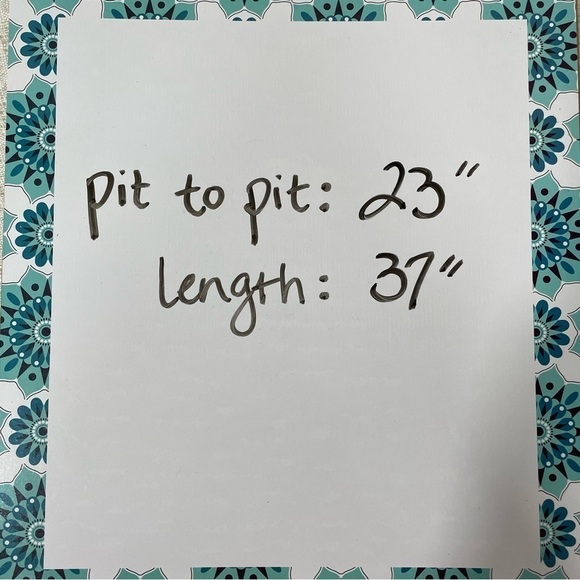 pit to pit: 23"
length: 37"